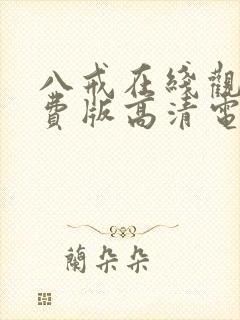 八戒在綫觀
費版高清電
蘭朵朵